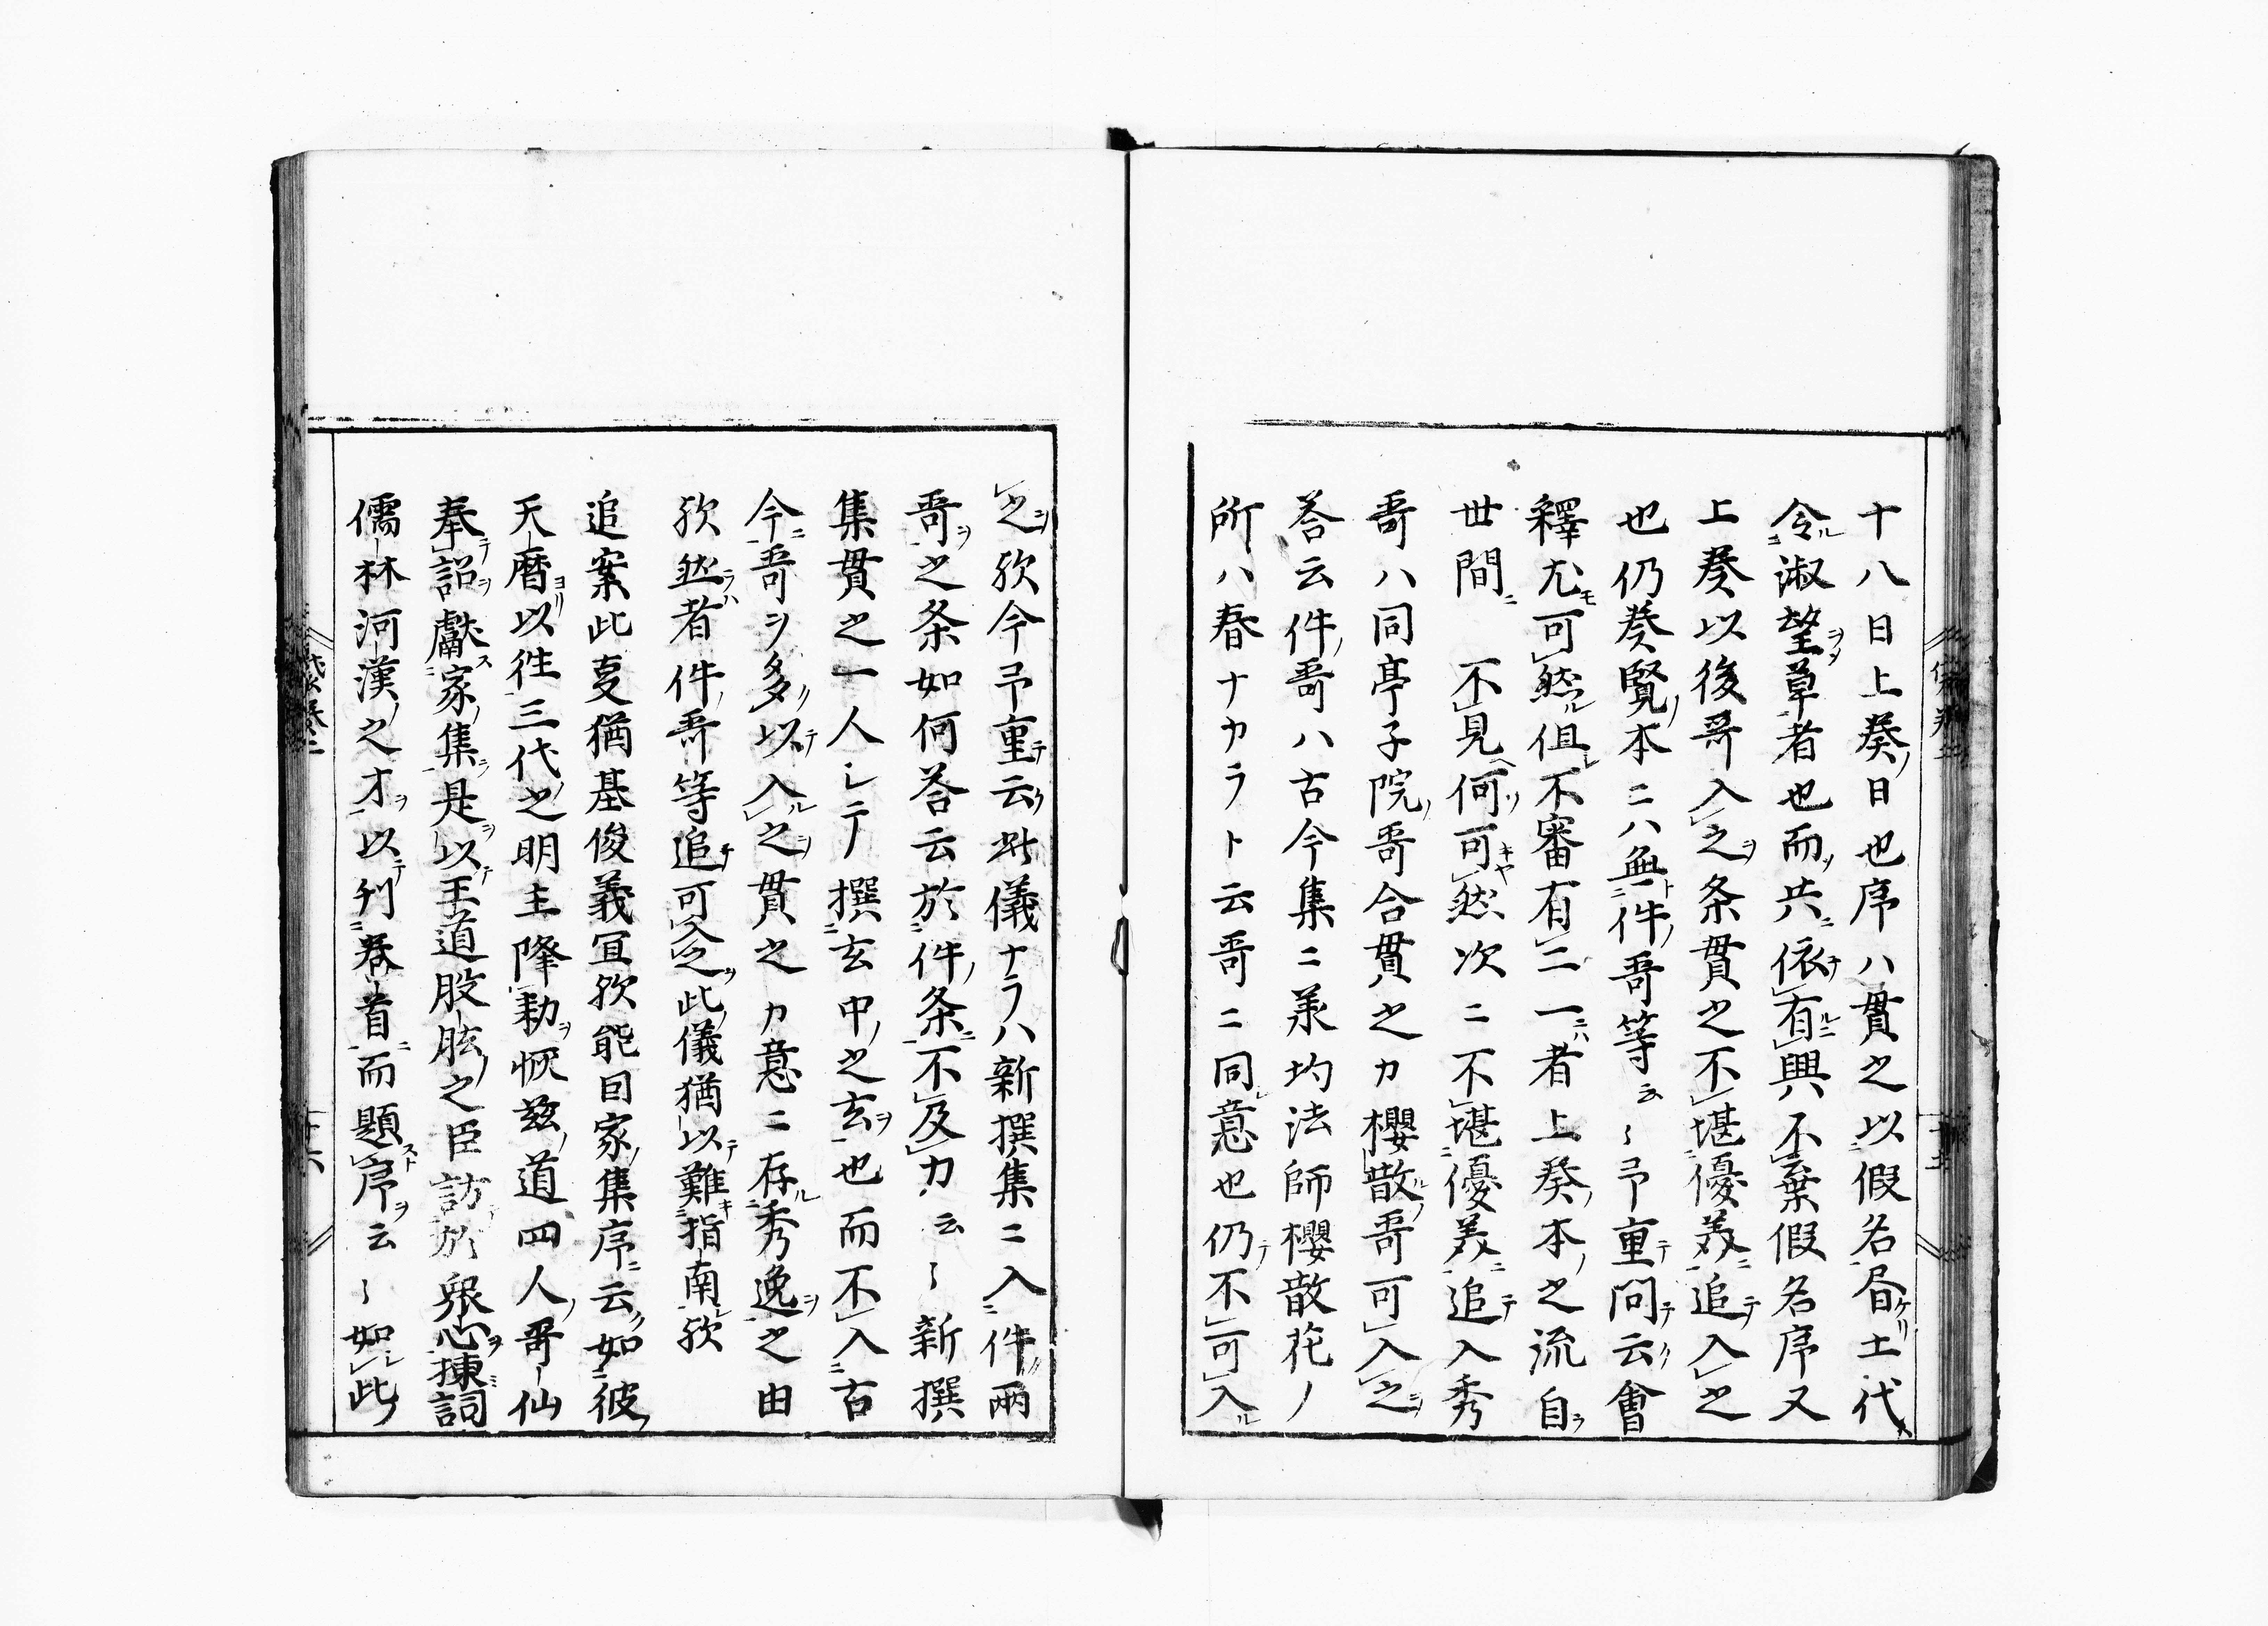 十八日上奏ノ日也序ハ貫之以假名ケリ土代
令淑望草者也而共依有興不棄假名序又
上奏以後哥入之条貫之不堪優美追入之
也仍奏覧本ニハ無件哥等云〻予重問云會
釋尤可然但不審有二一者上奏本之流自
世間不見何可然次ニ不堪優美追入秀
哥ハ同亭子院哥合貫之カ櫻散哥可入之
荅云件哥ハ古今集ニ羕均法師櫻散花ノ
所ハ春ナカラト云哥ニ同意也仍不可入
之欤今予重云此儀ナラハ新撰集ニ入件兩
哥之条如何荅云於件条不及力云〻新撰
集貫之一人シテ撰玄中之玄也而不入古
今哥ヲ多以入之貫之カ意ニ存秀逸之由
欤然者件哥等追可入之此儀猶以難指南欤
追案此㕝猶基俊義冝欤能因家集序云如彼
天暦以徃三代之明主降勅恢兹道四人哥仙
奉詔獻家集是以王道股肱之臣訪於衆心揀詞
儒林河漢之才以刊巻首而題序云〻如此